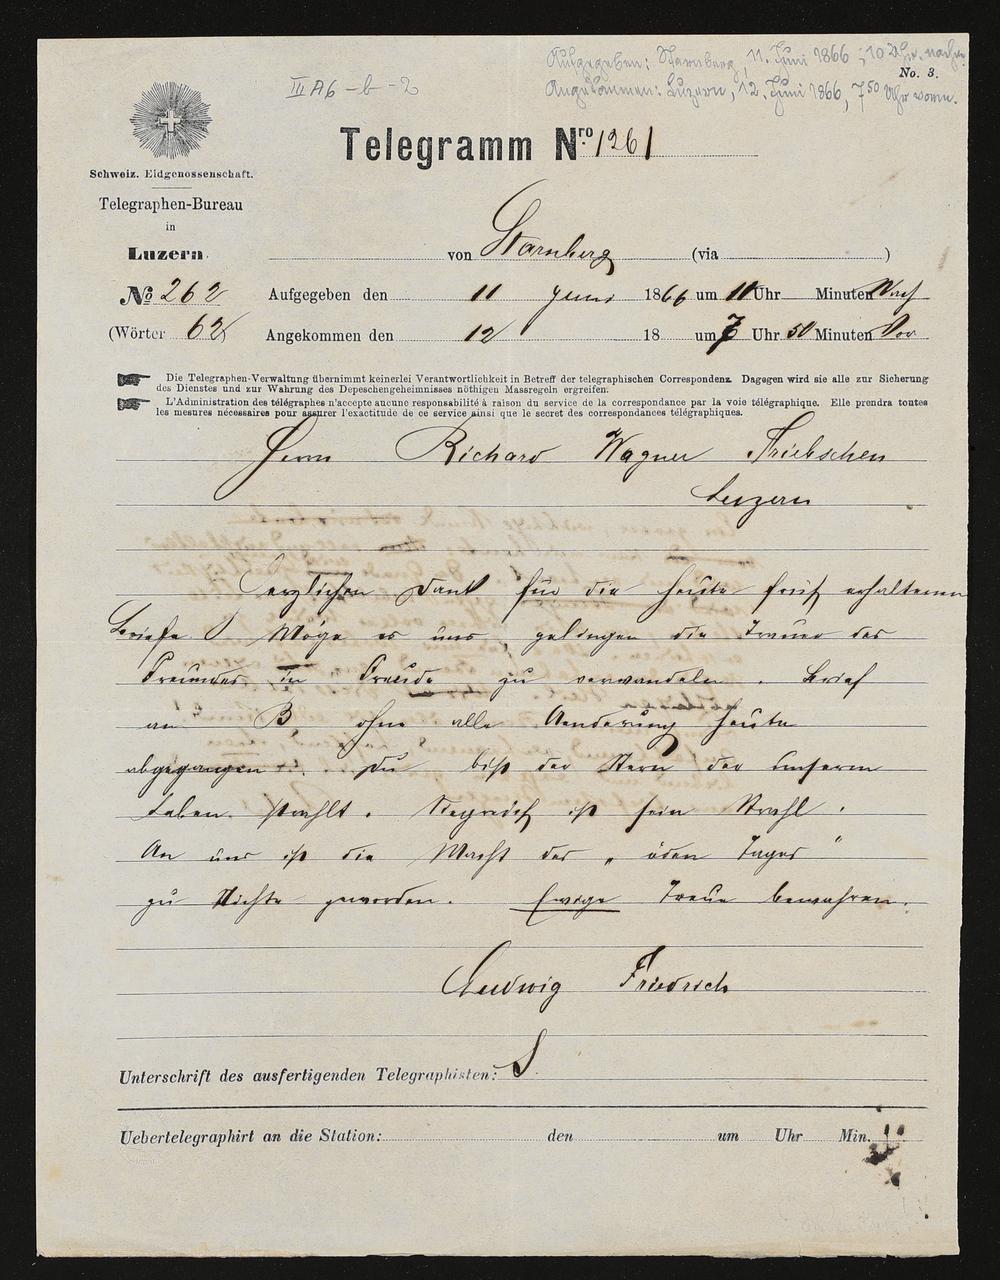 Aufgegeben: Starnberg, 11. Juni 1866; 10 Uhr. nachm.
No. 3.
III A6-b-2
Angekommen: Luzern, 12. Juni 1866, 7 50 Uhr vorm.
Telegramm Nro 1261
Schweiz. Eidgenossenschaft.
Telegraphen-Bureau
in
Luzern.
von Starnberg (via )
No 262 Aufgegeben den 11 Juni 1866 um 10 Uhr Minuten Nach
(Wörter 62) Angekommen den 12 18 um 7 Uhr 50 Minuten Vor
Die Telegraphen-Verwaltung übernimmt keinerlei Verantwortlichkeit in Betreff der telegraphischen Correspondenz. Dagegen wird sie alle zur Sicherung
des Dienstes und zur Wahrung des Depeschengeheimnisses nöthigen Massregeln ergreifen.
L'Administration des télégraphes n'accepte aucune responsabilité à raison du service de la correspondance par la voie télégraphique. Elle prendra toutes
les mesures nécessaires pour assurer l'exactitude de ce service ainsi que le secret des correspondances télégraphiques.
Herrn Richard Wagner Triebschen
Luzern
Herzlichen Dank für die heute früh erhaltenen
Briefe. O Möge es uns gelingen die Trauer des
Freundes in Freude zu verwandeln. Brief
an B ohne alle Aenderung heute
abgegangen. Du bist der Stern der unserm
Leben strahlt. Siegreich ist sein Strahl.
An uns ist die Macht des „öden Tages"
zu Nichte geworden. Ewige Treue bewahren.
Ludwig Friedrich
Unterschrift des ausfertigenden Telegraphisten: S
Uebertelegraphirt an die Station: den um Uhr Min.